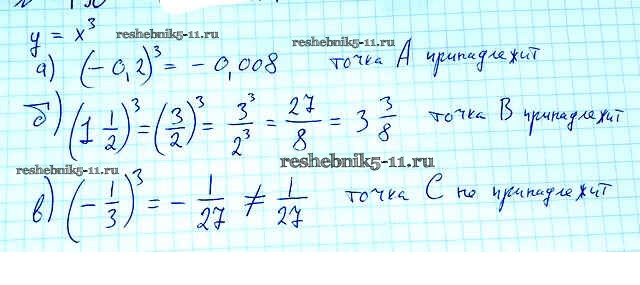 y = x³
reshebnik5-11.ru
reshebnik5-11.ru
а) (-0,2)³ = -0,008 точка A принадлежит
б) (1 1/2)³ = (3/2)³ = 3³/2³ = 27/8 = 3 3/8 точка B принадлежит
reshebnik5-11.ru
reshebnik5-11.ru
в) (-1/3)³ = -1/27 ≠ 1/27 точка C не принадлежит